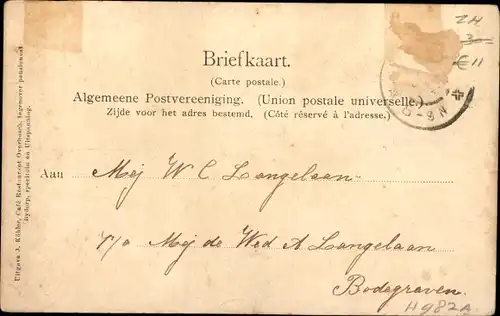 Briefkaart.
(Carte postale.)
Algemeene Postvereeniging. (Union postale universelle.)
Zijde voor het adres bestemd. (Côté réservé à l'adresse.)
Aan Mej W C Langelaan
p/a Mej de Wed A Langelaan
Bodegraven
ZH
3-
€ 11
8-9N
H982A
Uitgave J. Köhler, Café Restaurant Overbosch, tegenover pensionnet